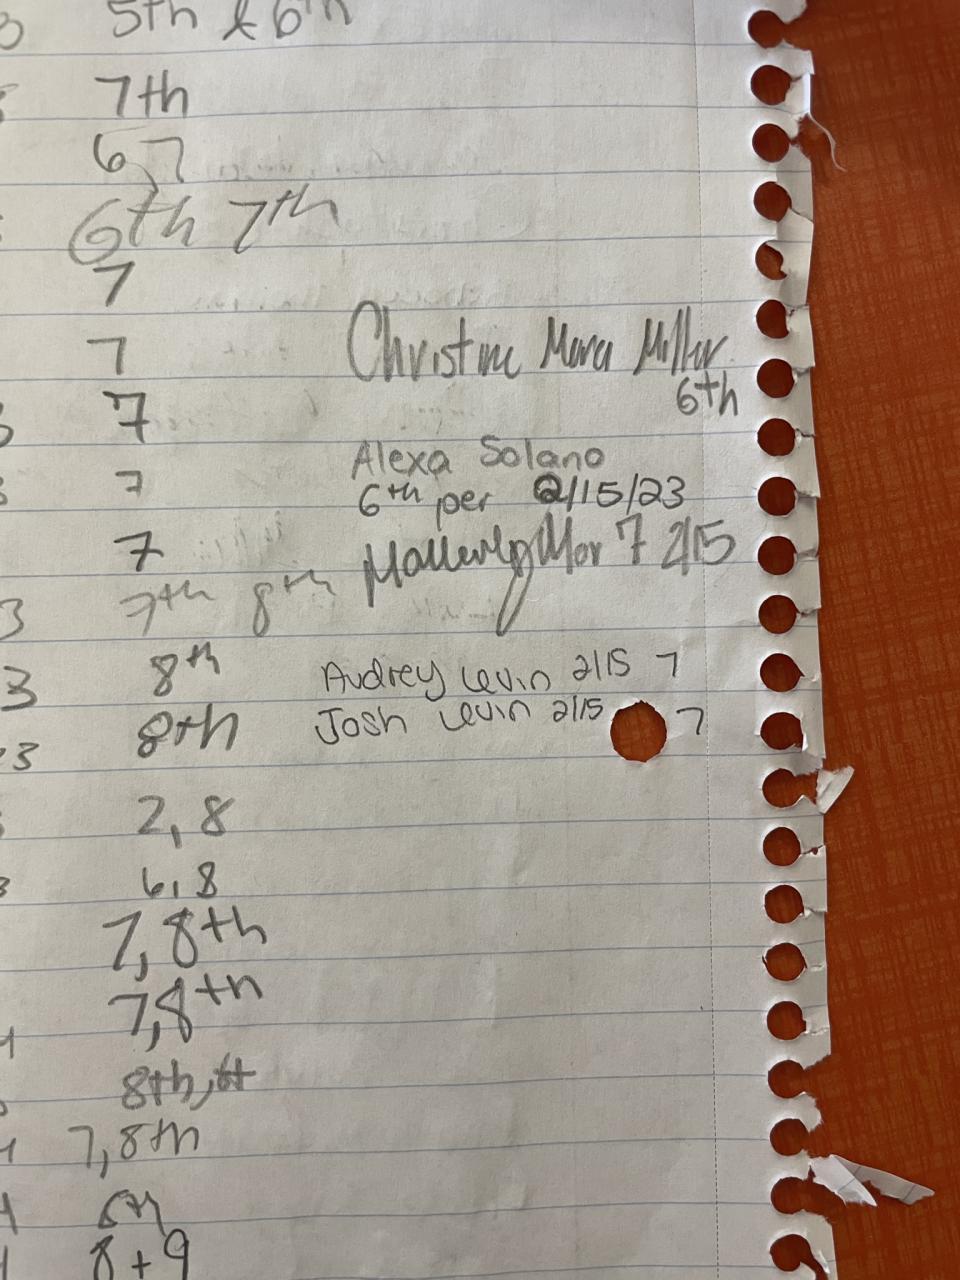 5th & 6th
7th
6, 7
6th 7th
7
7 Christine Mara Miller
6th
7
Alexa Solano
7 6th per 2/15/23
7 7 2/15
3 7th 8th
3 8th Audrey Levin 2/15 7
23 8th Josh Levin 2/15 7
2, 8
6, 8
7, 8th
7, 8th
8th,
7, 8th
8 + 9